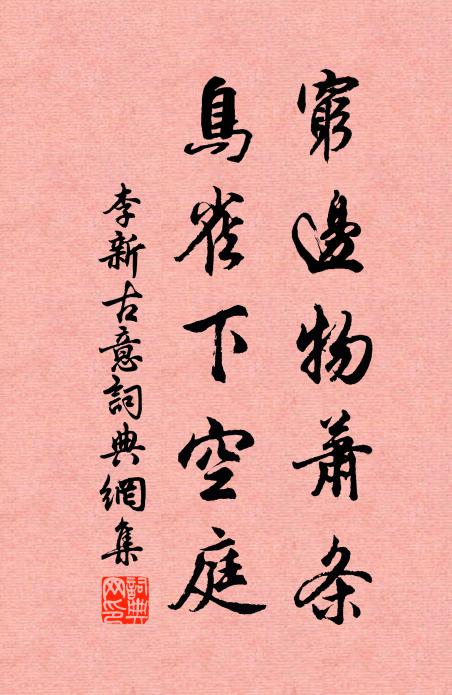 窮邊物蕭条
鳥雀下空庭
李新古意詞典網集
詞典網印